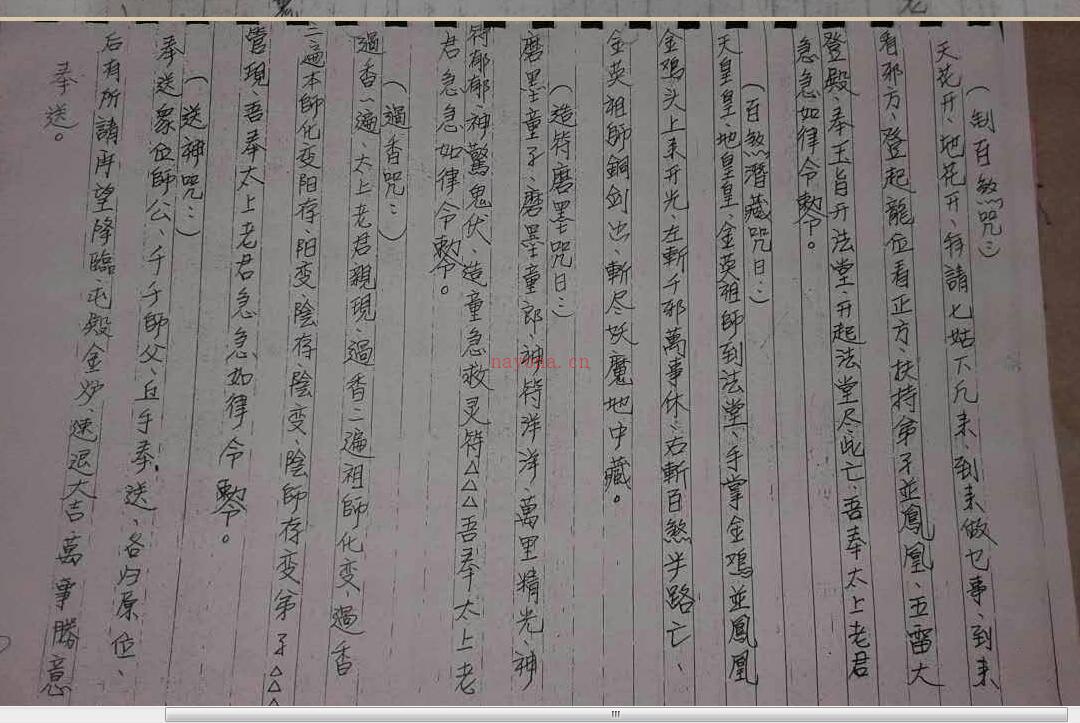 (制百煞咒:)
天花开、地花开、拜請七姑下凡来、到来做乜事、到来
看邪方、登起龍位看正方、扶持弟子並鳳凰、五雷大
登殿、奉玉旨开法堂、开起法堂尽此亡、吾奉太上老君
急急如律令勅。
(百煞潛藏咒日:)
天皇皇、地皇皇、金英祖師到法堂、手掌金鳮並鳳凰
金鳮头上来开光、左斬千邪萬事休、右斬百煞半路亡、
金英祖師銅剑出、斬尽妖魔地中藏。
(造符磨墨咒日:)
磨墨童子、磨墨童郎、神符洋洋、萬里精光、神
符郁郁、神驚鬼伏、造童急救灵符△△△吾奉太上老
君急急如律令勅。
(過香咒:)
過香一遍、太上老君親現、過香二遍祖師化变、過香
三遍本師化变阳存、阳变、陰存陰变、陰師存变弟子△△△
管現、吾奉太上老君急急如律令勅。
(送神咒:)
奉送衆位師公、千千師父、丘手奉送、各归原位、
后有所請再望降臨、金炉、速退大吉、萬事勝意
奉送。
nayona.cn